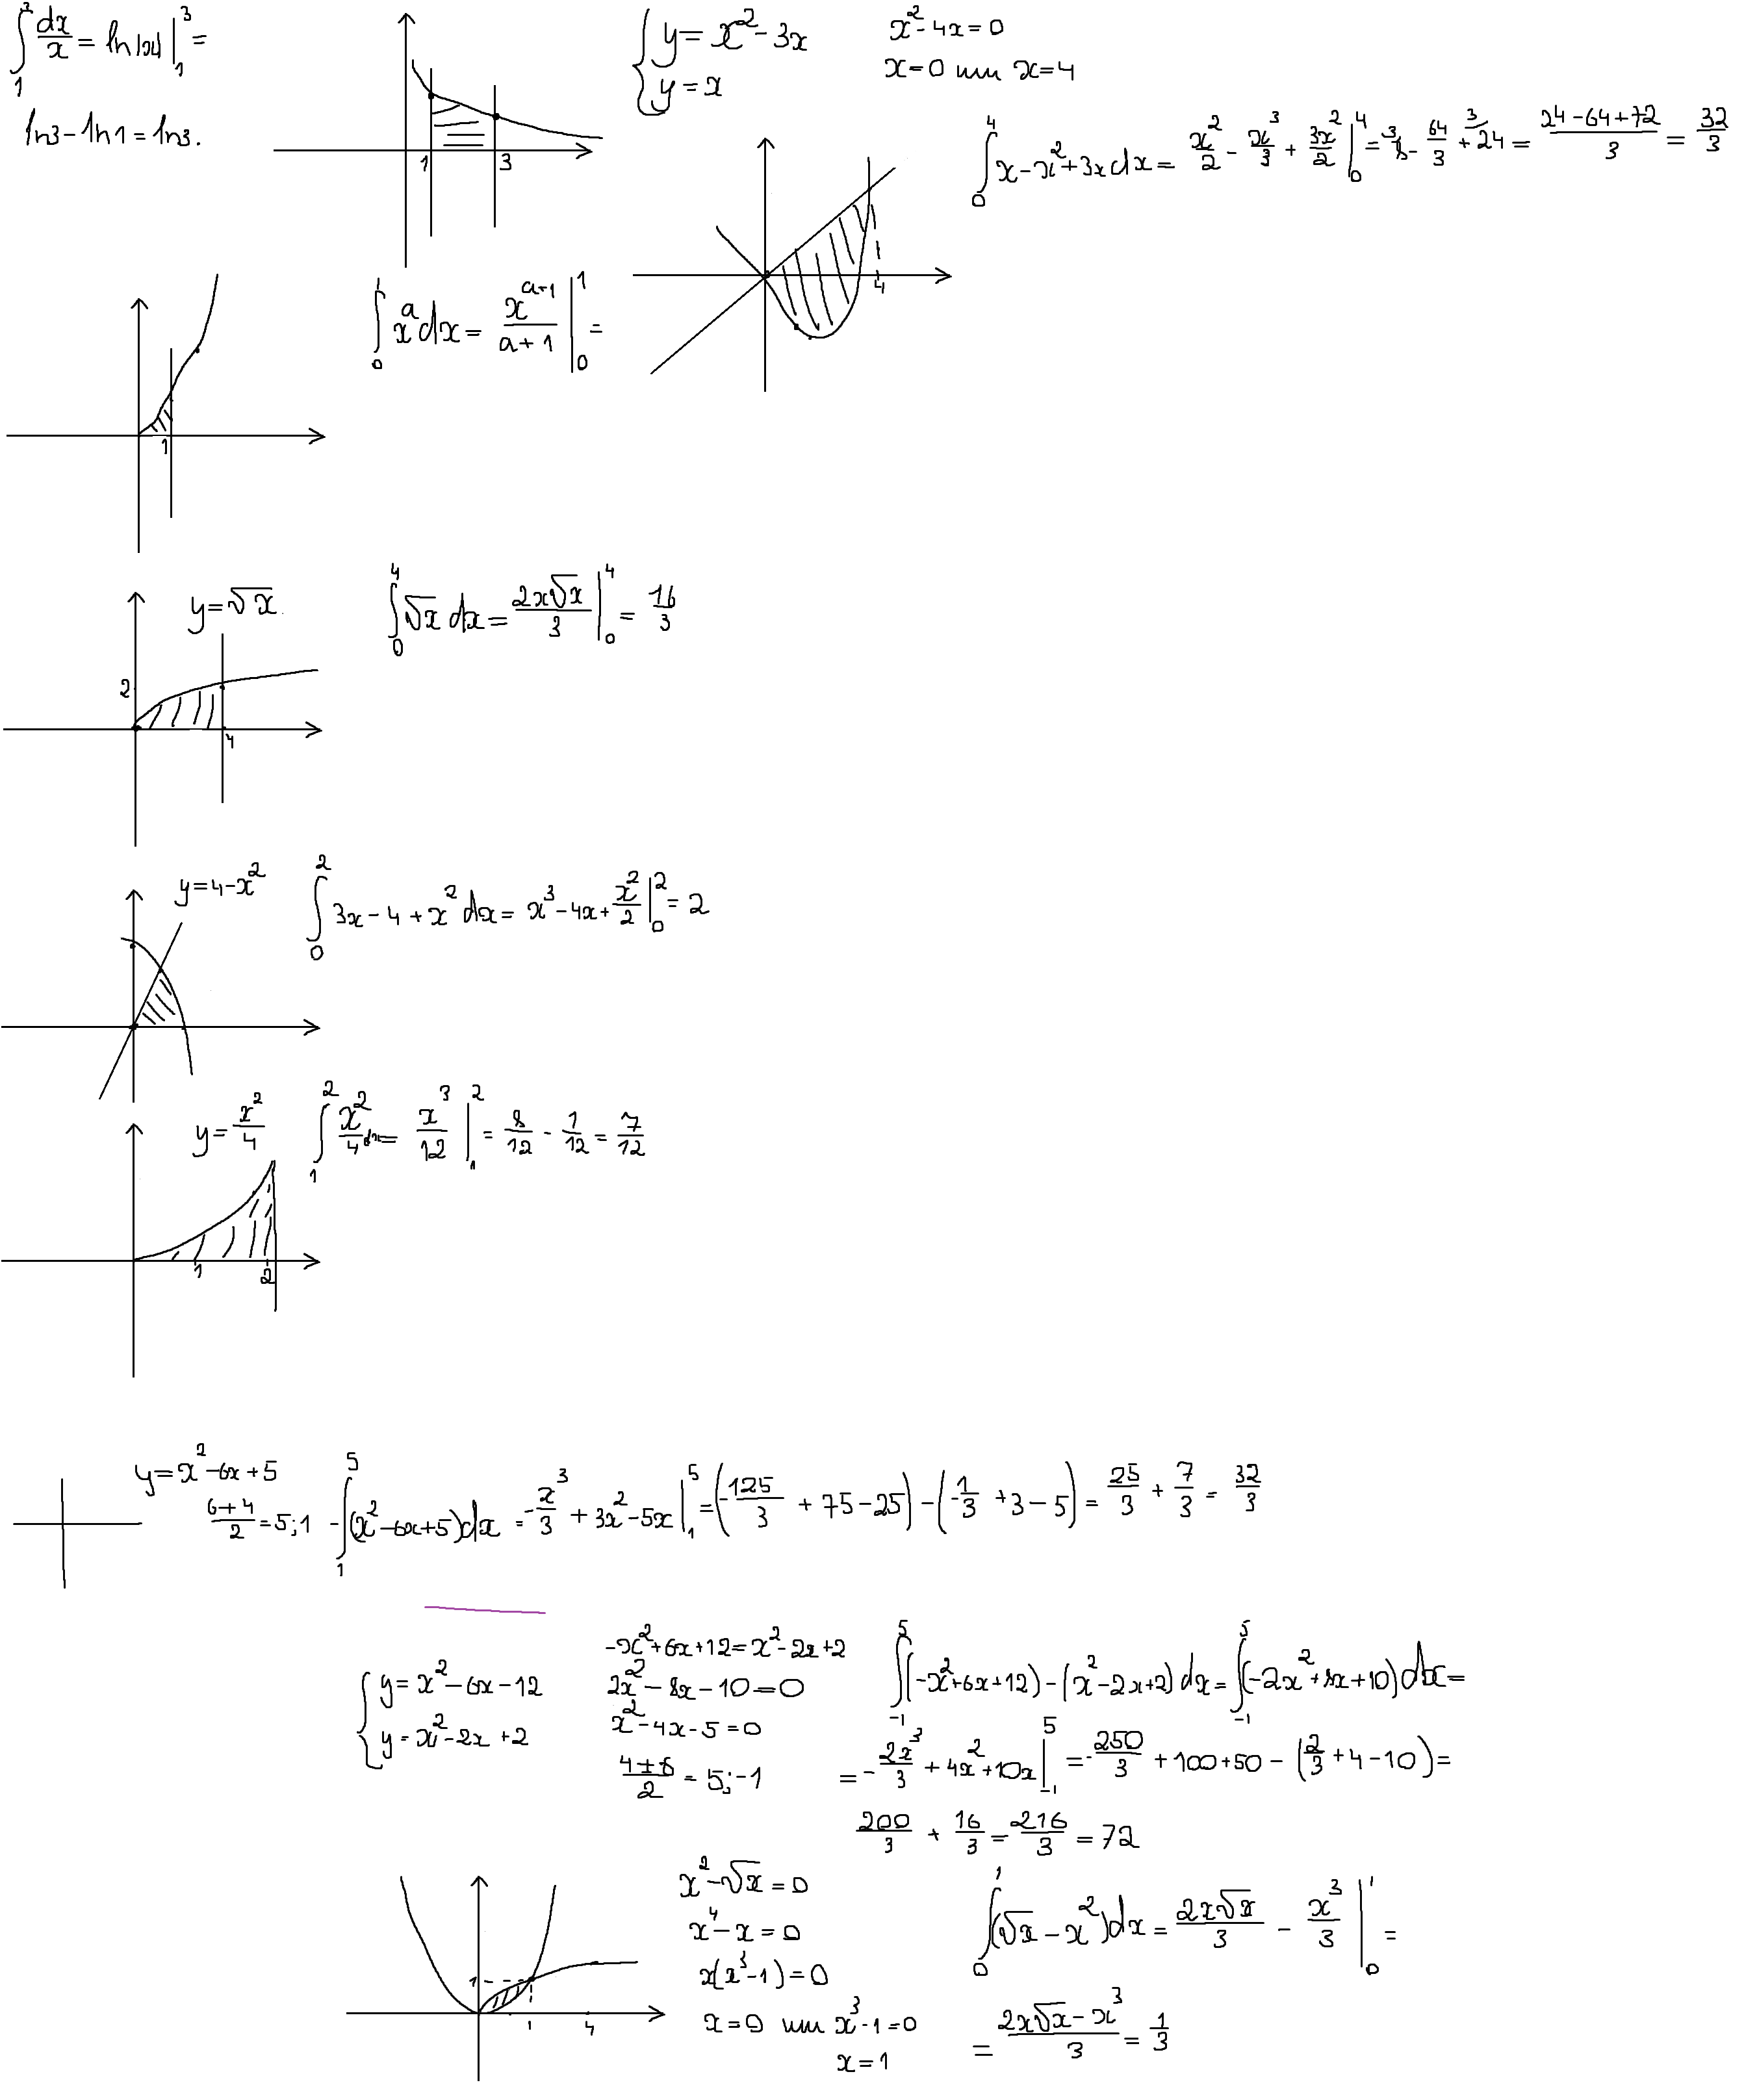 ∫₁³ dx/x = ln|x| |₁³ =
ln3 - ln1 = ln3.
1 3
{ y = x² - 3x
y = x
x² - 4x = 0
x = 0 или x = 4
∫₀⁴ x - x² + 3x dx = x²/2 - x³/3 + 3x²/2 |₀⁴ = ³8 - 64/3 + ³24 = (24 - 64 + 72)/3 = 32/3
4
1
∫₀¹ xᵃ dx = xᵃ⁺¹/(a+1) |₀¹ =
y = √x.
2
4
∫₀⁴ √x dx = 2x√x/3 |₀⁴ = 16/3
y = 4 - x²
∫₀² 3x - 4 + x² dx = x³ - 4x + x²/2 |₀² = 2
y = x²/4
∫₁² x²/4 dx = x³/12 |₁² = 8/12 - 1/12 = 7/12
1 2
y = x² - 6x + 5
(6+4)/2 = 5;1
-∫₁⁵ (x² - 6x + 5)dx = -x³/3 + 3x² - 5x |₁⁵ = (-125/3 + 75 - 25) - (-1/3 + 3 - 5) = 25/3 + 7/3 = 32/3
{ y = x² - 6x - 12
y = x² - 2x + 2
-x² + 6x + 12 = x² - 2x + 2
2x² - 8x - 10 = 0
x² - 4x - 5 = 0
(4±6)/2 = 5;-1
∫₋₁⁵ (-x² + 6x + 12) - (x² - 2x + 2) dx = ∫₋₁⁵ (-2x² + 8x + 10) dx =
= -2x³/3 + 4x² + 10x |₋₁⁵ = -250/3 + 100 + 50 - (2/3 + 4 - 10) =
200/3 + 16/3 = 216/3 = 72
1
1 4
x² - √x = 0
x⁴ - x = 0
x(x³ - 1) = 0
x = 0 или x³ - 1 = 0
x = 1
∫₀¹ (√x - x²)dx = 2x√x/3 - x³/3 |₀¹ =
= (2x√x - x³)/3 = 1/3